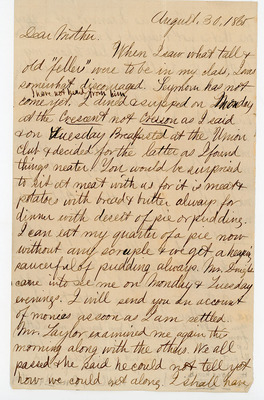 August, 30, 1865
Dear Mother.
When I saw what tall &
old "fellers" were to be in my class, I was
somewhat discouraged. Seymour has not
I have not heard from him
come yet. I dined & supped on Monday
at the Crescent not Edison as I said
& on Tuesday Breakfasted at the Union
Club & decided for the latter as I found
things neater. You would be surprised
to sit at meat with us for it is meat &
potatoes with bread & butter always for
dinner with desert of pie or pudding.
I can eat my quarter of a pie now
without any scruple & we get a heaping
saucerful of pudding always. Mr.
came in to see me on Monday & Tuesday
evenings. I will send you an account
of monies as soon as I am settled.
Mr. Taylor examined me again this
morning along with the others. We all
passed & he said he could not tell yet
how we could get along. I shall have